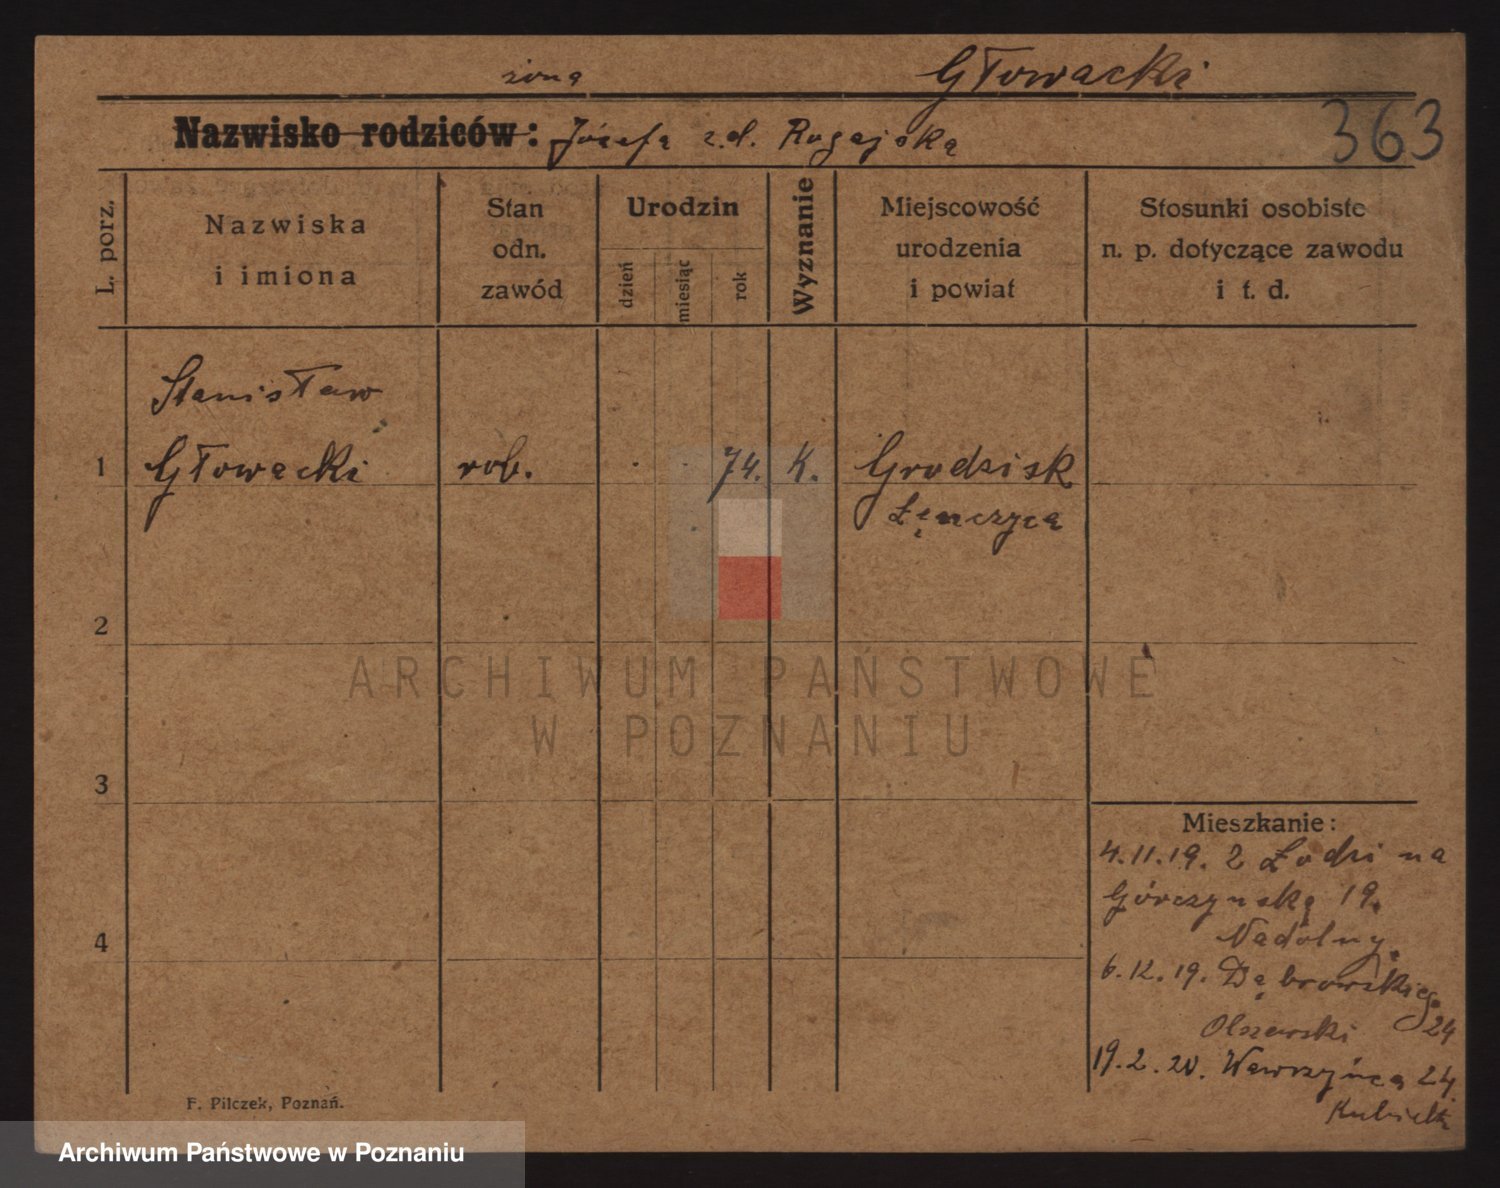 żona Głowacki
Nazwisko rodziców: Józefa z.d. Rogajska
363
L. porz.
Nazwiska
i imiona
Stan
odn.
zawód
Urodzin
dzień
miesiąc
rok
Wyznanie
Miejscowość
urodzenia
i powiat
Stosunki osobiste
n. p. dotyczące zawodu
i t. d.
Stanisław
1 Głowacki rob. 74. K. Grodzisk
Łęnczyca
2
ARCHIWUM PAŃSTWOWE
W POZNANIU
3
Mieszkanie:
4.11.19. z Łodzi na
Górczyńską 19.
Nadolny.
4
6.12.19. Dąbrowskiego
Olszewski 24
19.2.20. Wawrzyńca 24.
F. Pilczek, Poznań.
Archiwum Państwowe w Poznaniu